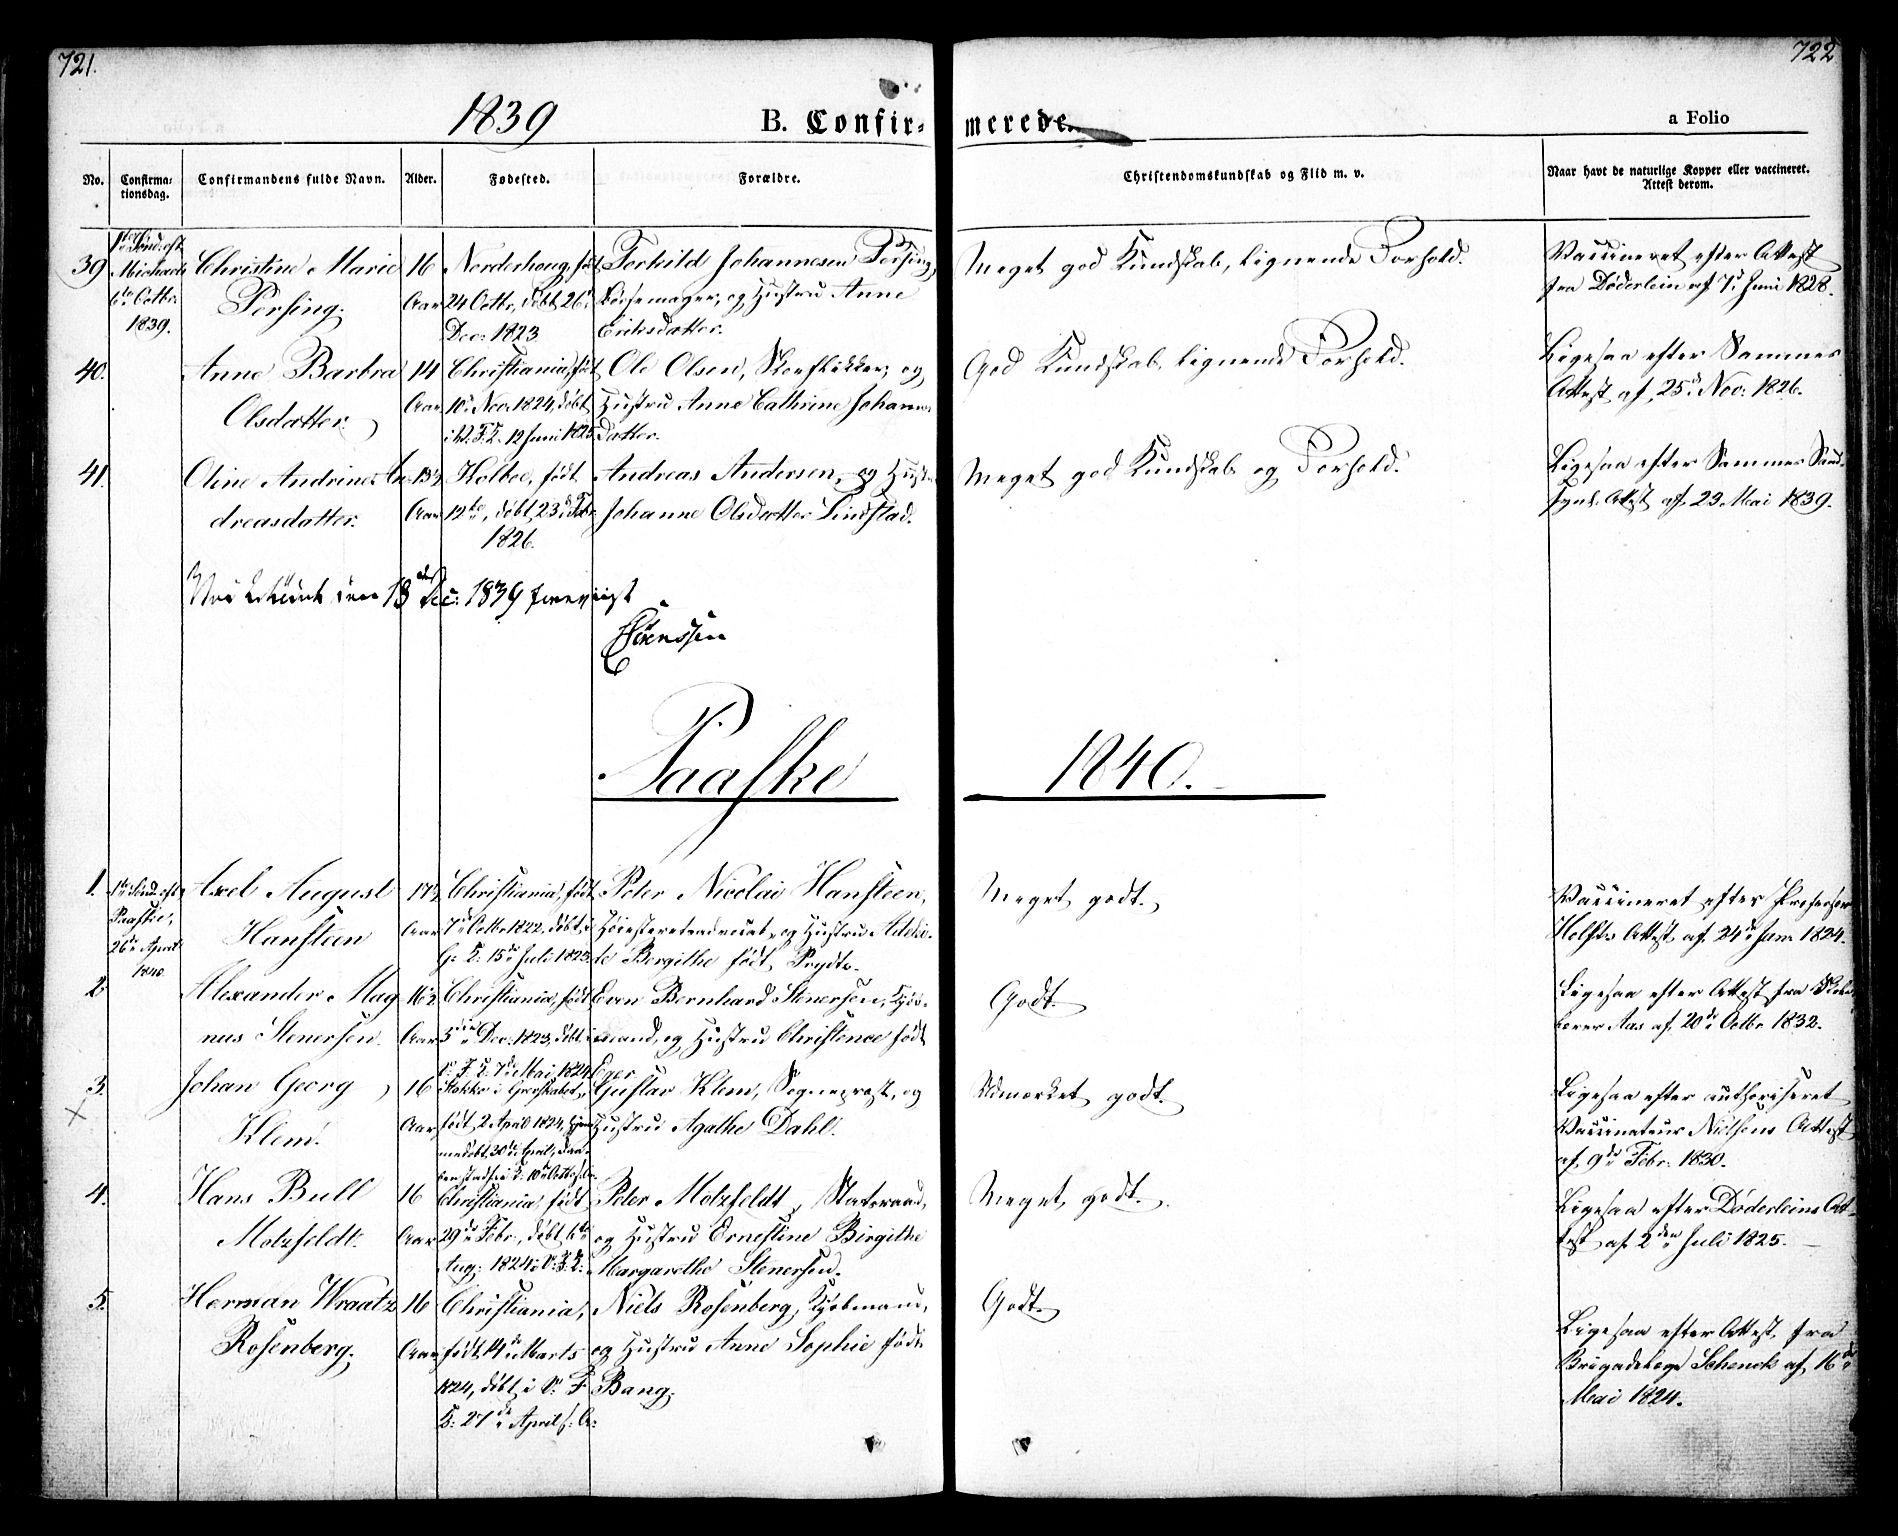 721.
722
1839
B. Confir-
merede.
a Folio
No.
Confirma-
tionsdag.
Confirmandens fulde Navn.
Alder.
Fødested.
Forældre.
Christendomskundskab og Flid m. v.
Naar havt de naturlige Kopper eller vaccineret.
Attest derom.
39
1ste Sønd. eft.
Michaels
6te Octbr.
1839.
Christine Marie
Persing.
16
Aar
Norderhoug, født
24 Octbr, døbt 26
Dec. 1823
Torkild Johannesen Persing,
Børsemager, og Hustru Anne
Eriksdatter.
Meget god Kundskab, lignende Forhold.
Vaccineret efter Attest
fra Døderlein af 7 Juni 1828.
40.
Anne Barbra
Olsdatter
14
Aar
Christiania, født
10 Nov. 1824, døbt
12 Juni 1825
Ole Olsen, og
Hustru Anne Cathrine Johannes
datter.
God Kundskab, lignende Forhold.
Ligesaa efter Sammes
Attest af 25 Nov. 1826.
41.
Oline Andrine An-
dreasdatter.
15½
Aar
Holboe, født
12te, døbt 23
1826.
Andreas Andersen, og Hust.
Johanne Olsdatter Lindstad.
Meget god Kundskab og Forhold.
Ligesaa efter Sammes
Attest af 23 Mai 1839.
den 18 Dec. 1839
Paaske
1840.
1.
1te Sønd. eft
Paaske,
26 April
1840
Axel August
Hansteen
17½
Aar
Christiania, født
7 Octbr 1822, døbt i
G. K. 15 Juli 1823
Peter Nicolai Hansteen,
Høiesteretsadvocat, og Hustru Adelei-
de Bergithe født Prydtz.
Meget godt.
Vaccineret efter Professor
Holsts Attest af 24 Juni 1824.
2
Alexander Mag
nus Stenersen.
16½
Aar
Christiania, født
5 Dec. 1823, døbt i
V. F. K. 7 Mai 1824
Even Bernhard Stenersen, Kjøb-
mand, og Hustru Christence født
Eger
Godt.
Ligesaa efter Attest fra
Aas af 20de Octbr 1832.
3.
Johan Georg
Klem.
16
Aar
Stokke i Grevskabet,
født 2 April 1824, hjem
medøbt 20 April,
Gustav Klem, Sogneprest, og
Hustru Agathe Dahl.
Udmærket godt.
Ligesaa efter authoriseret
Vaccinateur Nielsens Attest
af 9de Febr. 1830.
4.
Hans Bull
Motzfeldt.
16
Aar
Christiania, født
29 Febr., døbt 6te
Aug. 1824 i V. F. K.
Peter Motzfeldt, Statsraad,
og Hustru Ernestine Birgithe
Margarethe Stenersen.
Meget godt.
Ligesaa efter Døderleins At-
test af 2den Juli 1825.
5.
Herman Wraatz
Rosenberg.
16
Aar
Christiania,
født 14de Marts
1824, døbt i V. F
K. 27de April s. A.
Niels Rosenberg, Kjøbmand,
og Hustru Anne Sophie født
Bang.
Godt.
Ligesaa efter Attest fra
Brigadelæge Schenck af 16de
Mai 1824.